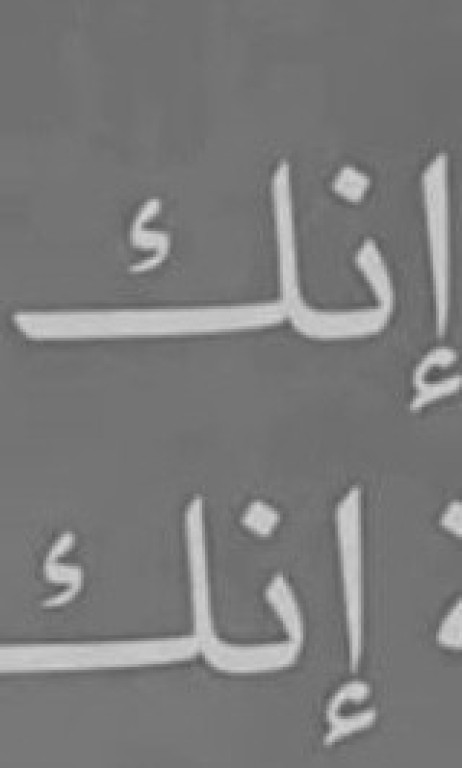 إنك
إنك